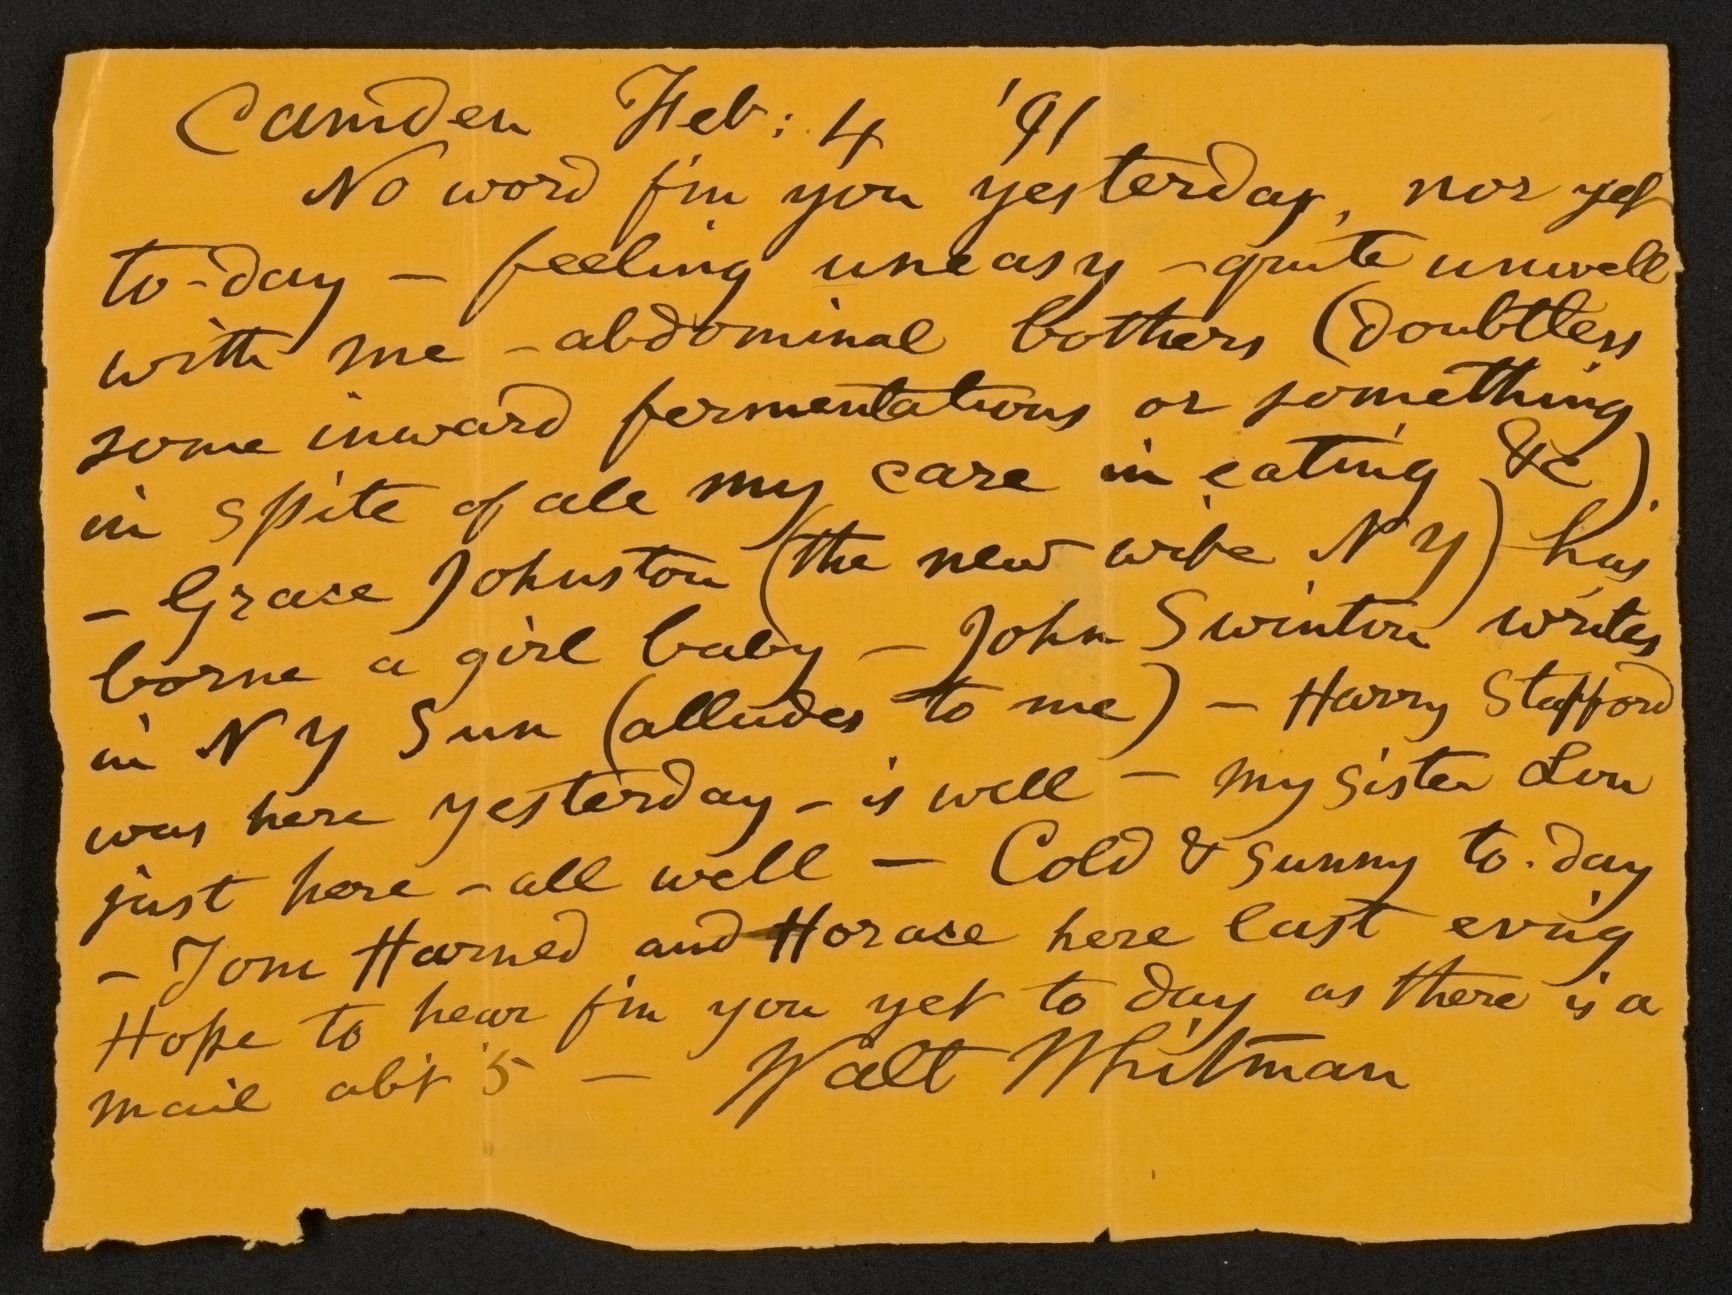 Camden Feb: 4 '91
No word f'm you yesterday, nor yet
to-day — feeling uneasy — quite unwell
with me — abdominal bothers (doubtless
some inward fermentations or something
in spite of all my care in eating &c).
— Grace Johnston (the new wife N Y) has
borne a girl baby — John Swinton writes
in N Y Sun (alludes to me) — Harry Stafford
was here yesterday — is well — my sister Lou
just here — all well — Cold & sunny to-day
— Tom Harned and Horace here last ev'n'g
Hope to hear f'm you yet to day as there is a
mail ab't 5 — Walt Whitman